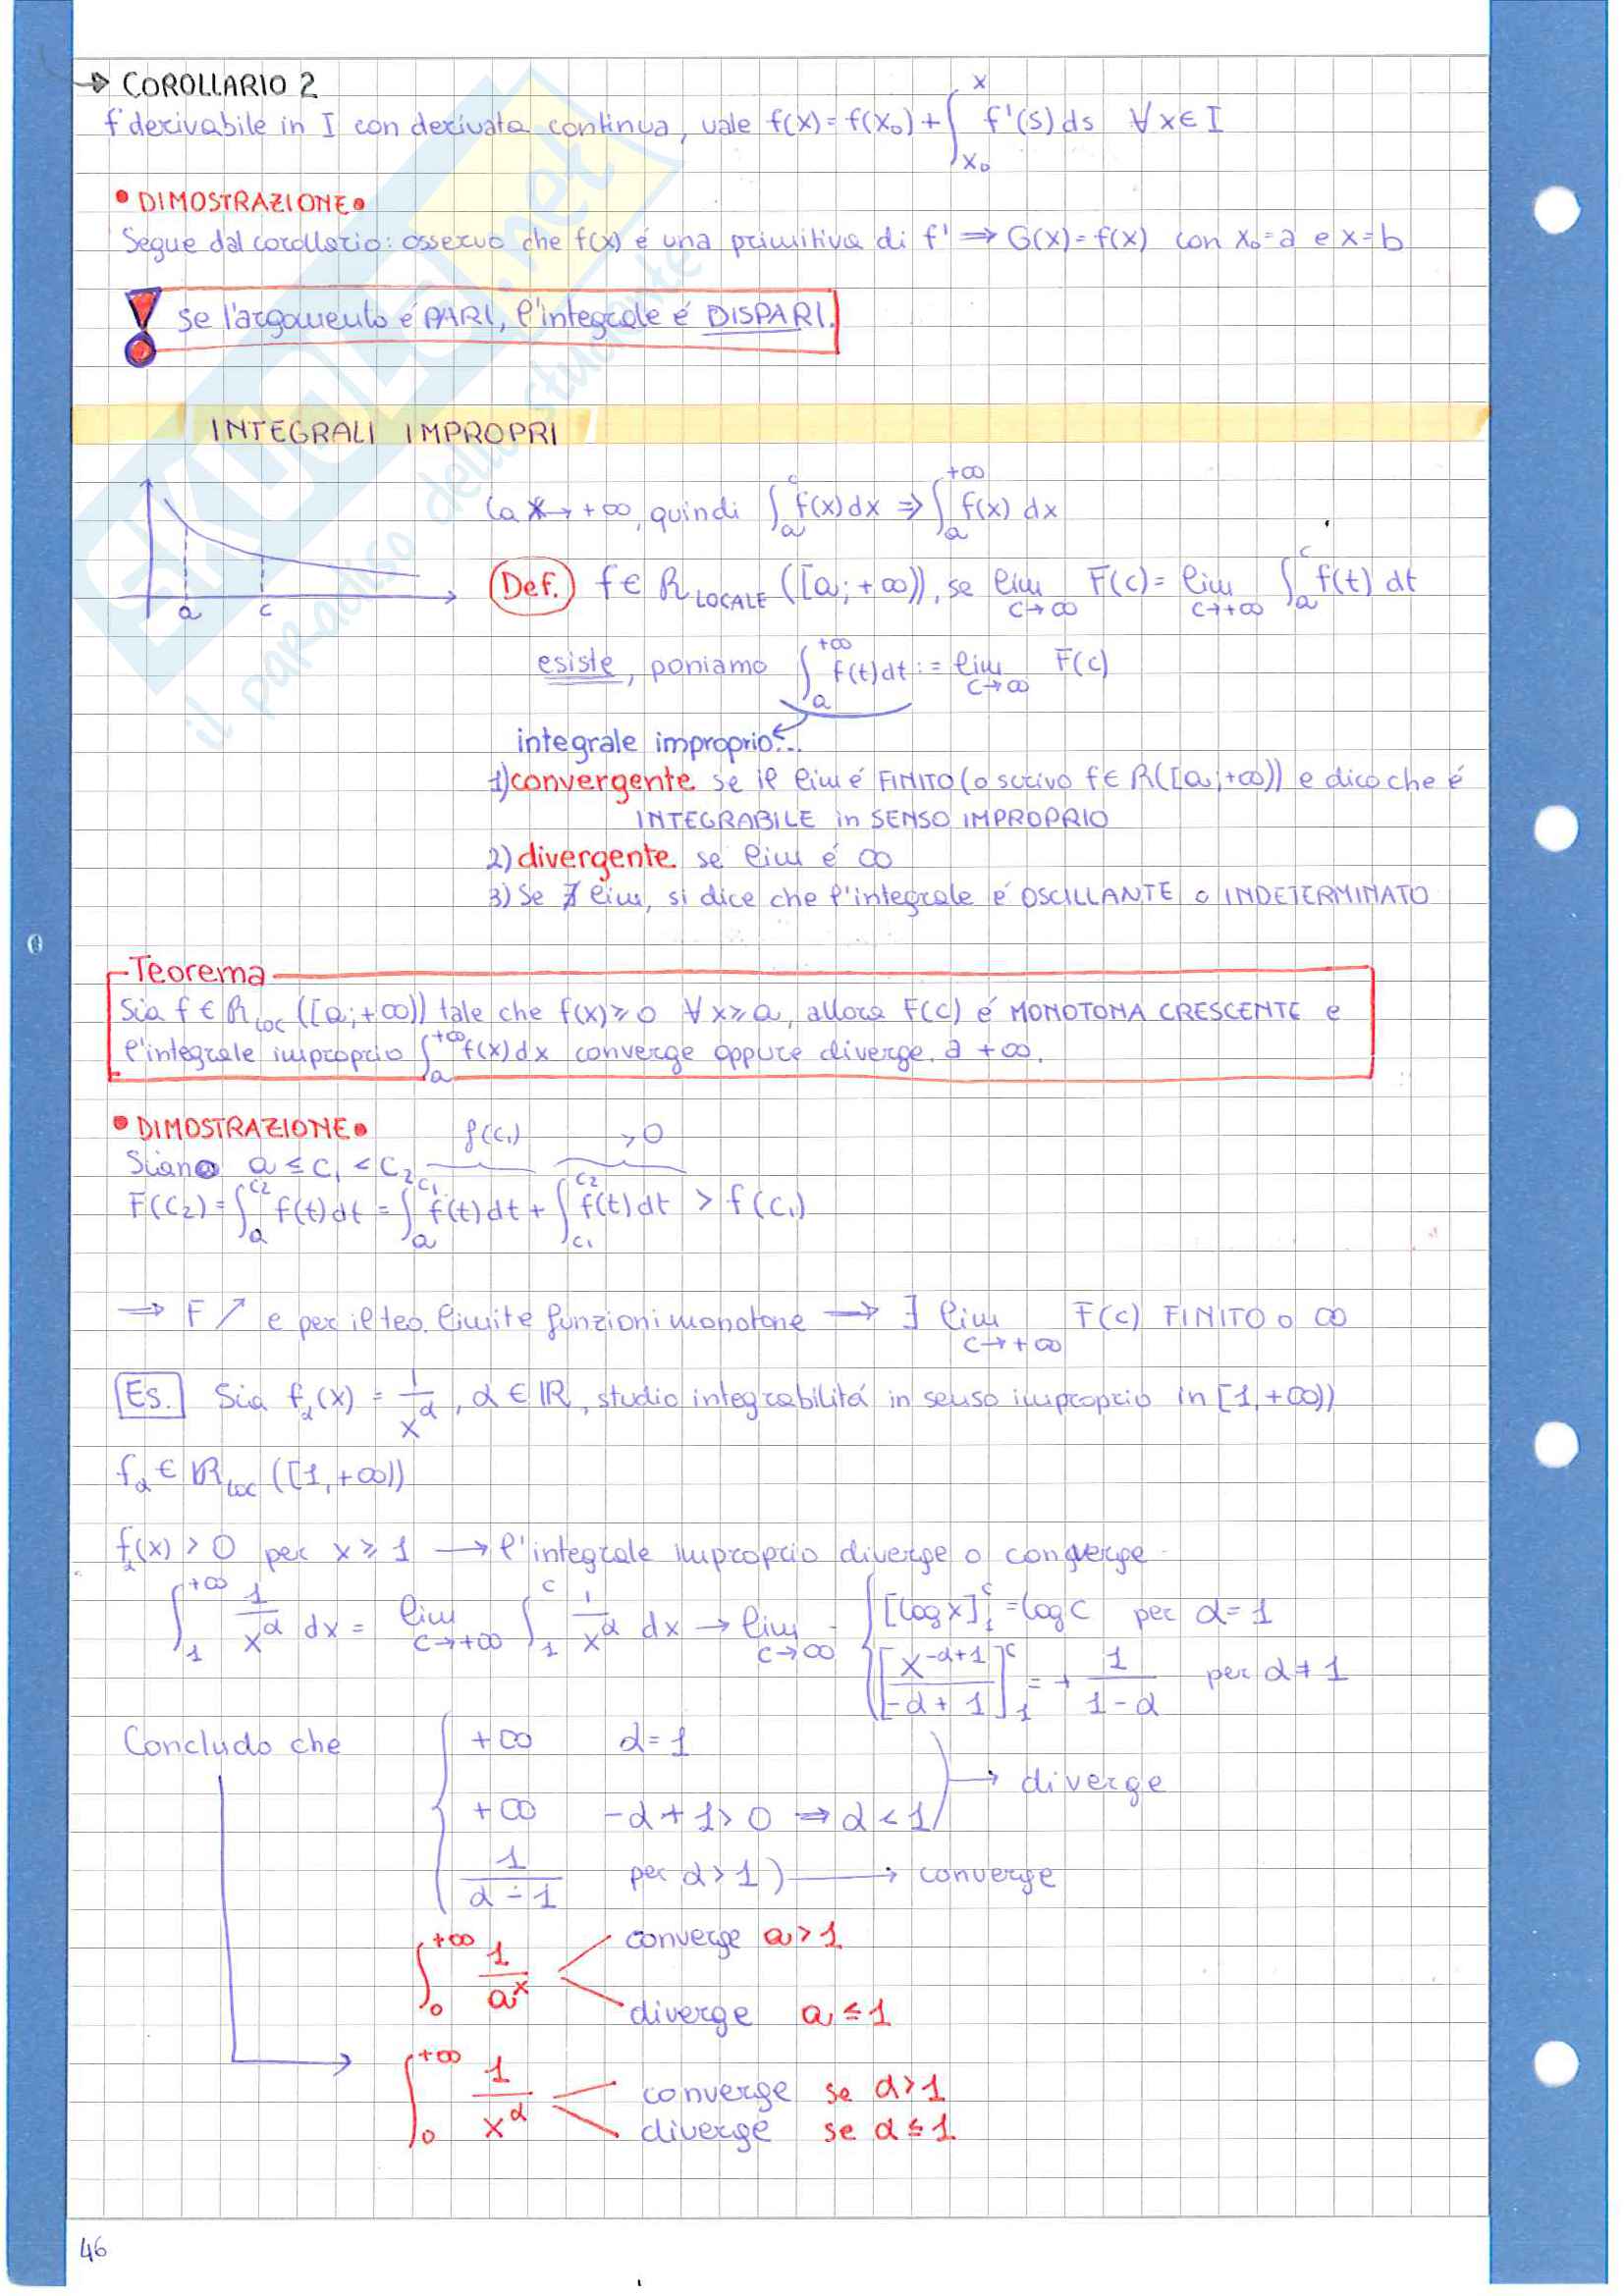 → COROLLARIO 2
f derivabile in I con derivata continua, vale f(x) = f(x₀) + ∫_{x₀}^{x} f'(s) ds ∀ x ∈ I
• DIMOSTRAZIONE •
Segue dal corollario: osservo che f(x) é una primitiva di f' ⇒ G(x) = f(x) con x₀ = a e x = b
Se l'argomento é PARI, l'integrale é DISPARI.
INTEGRALI IMPROPRI
a c
→ +∞, quindi ∫_{a}^{c} f(x) dx ⇒ ∫_{a}^{+∞} f(x) dx
Def. f ∈ R_{LOCALE} ([a; +∞)), se lim_{c→∞} F(c) = lim_{c→+∞} ∫_{a}^{c} f(t) dt
esiste, poniamo ∫_{a}^{+∞} f(t) dt := lim_{c→∞} F(c)
integrale improprio...
1) convergente se il lim é FINITO (o scrivo f ∈ R([a; +∞)) e dico che é
INTEGRABILE in SENSO IMPROPRIO
2) divergente se lim é ∞
3) Se ∄ lim, si dice che l'integrale é OSCILLANTE o INDETERMINATO
Teorema
Sia f ∈ R_{LOC} ([a; +∞)) tale che f(x) ≥ 0 ∀ x ≥ a, allora F(c) é MONOTONA CRESCENTE e
l'integrale improprio ∫_{a}^{+∞} f(x) dx converge oppure diverge a +∞.
• DIMOSTRAZIONE •
f(c₁) >0
Siano a ≤ c₁ < c₂
F(c₂) = ∫_{a}^{c₂} f(t) dt = ∫_{a}^{c₁} f(t) dt + ∫_{c₁}^{c₂} f(t) dt > f(c₁)
⇒ F ↗ e per il teo. limite funzioni monotone → ∃ lim_{c→+∞} F(c) FINITO o ∞
Es. Sia f_α(x) = 1/x^α, α ∈ ℝ, studio integrabilitá in senso improprio in [1, +∞))
f_α ∈ R_{LOC} ([1, +∞))
f_α(x) > 0 per x ≥ 1 → l'integrale improprio diverge o converge
∫_{1}^{+∞} 1/x^α dx = lim_{c→+∞} ∫_{1}^{c} 1/x^α dx → lim_{c→∞} { [log x]_{1}^{c} = log c per α = 1
[x^{-α+1}/(-α+1)]_{1}^{c} = + 1/(1-α) per α ≠ 1
Concludo che { +∞ α = 1
+∞ -α + 1 > 0 ⇒ α < 1 ) → diverge
1/(α-1) per α > 1 ) → converge
∫_{0}^{+∞} 1/a^x converge a > 1
diverge a ≤ 1
∫_{0}^{+∞} 1/x^α converge se α > 1
diverge se α ≤ 1
46
SKUOLA.net
il paradiso dello studente